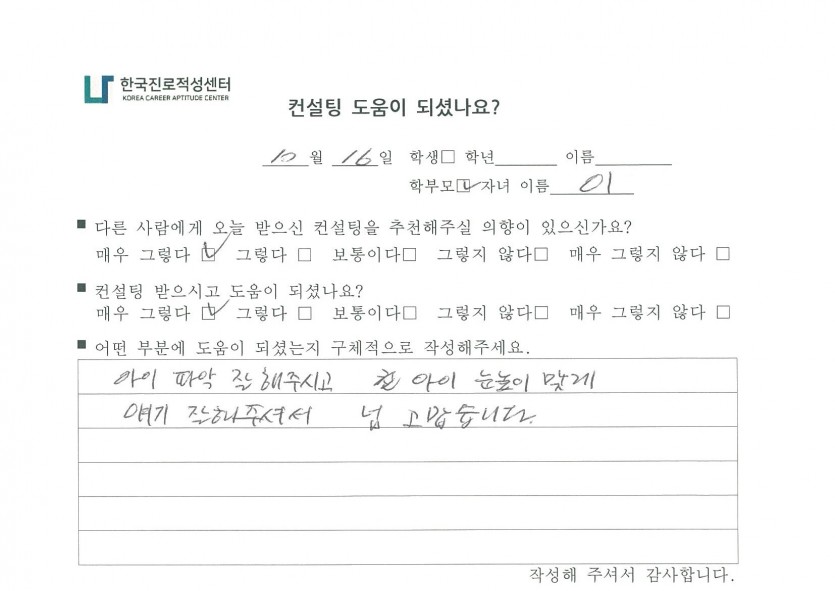 한국진로적성센터
KOREA CAREER APTITUDE CENTER
컨설팅 도움이 되셨나요?
10월 16일 학생□ 학년 이름
학부모☑자녀 이름 이
■ 다른 사람에게 오늘 받으신 컨설팅을 추천해주실 의향이 있으신가요?
매우 그렇다 ☑ 그렇다 □ 보통이다□ 그렇지 않다□ 매우 그렇지 않다 □
■ 컨설팅 받으시고 도움이 되셨나요?
매우 그렇다 ☑ 그렇다 □ 보통이다□ 그렇지 않다□ 매우 그렇지 않다 □
■ 어떤 부분에 도움이 되셨는지 구체적으로 작성해주세요.
아이 파악 잘 해주시고 아이 눈높이 맞게
얘기 잘해주셔서 넘 고맙습니다.
작성해 주셔서 감사합니다.